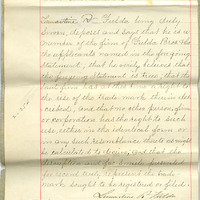 R. Fields being duly
sworn, deposes and says that he is a
member of the firm of Fields Bros
the applicants named in the foregoing
statement; that he verily believes that
the foregoing statement is true; that the
said firm has at this time a right to
the use of the trade mark therein des-
cribed; and that no other person, firm
or corporation has the right to such
use, either in the identical form or
in any such resemblance thereto as might
be calculated to deceive; and that
presented
for record truly represent the trade
mark sought to be registered
R. Fields